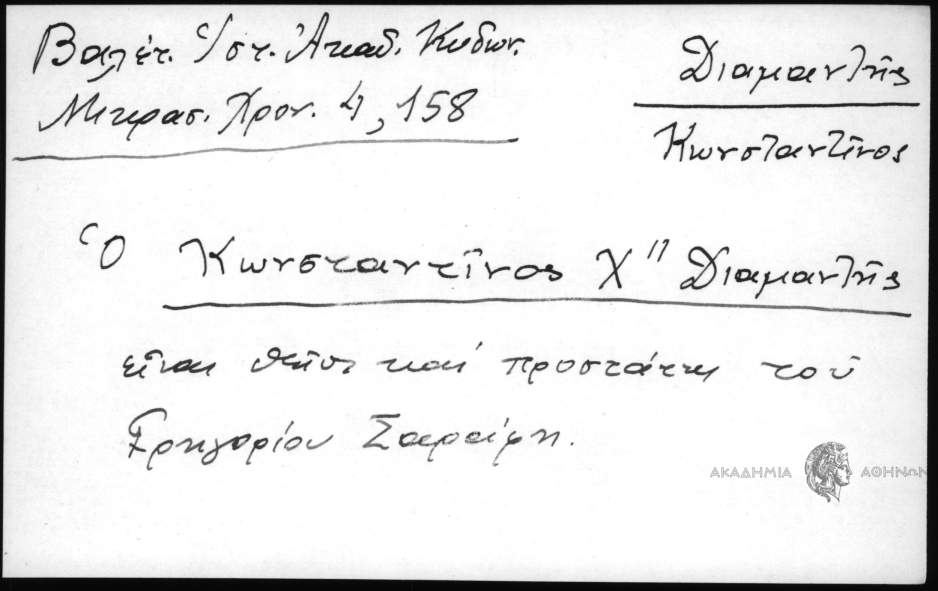 Βαλέτ. Ἱστ. Ἀκαδ. Κυδων.
Μικρασ. Χρον. 4, 158
Διαμαντῆς
Κωνσταντῖνος
Ὁ Κωνσταντῖνος Χ" Διαμαντῆς
εἶναι θεῖος καί προστάτης τοῦ
Γρηγορίου Σαράφη.
ΑΚΑΔΗΜΙΑ ΑΘΗΝΩΝ